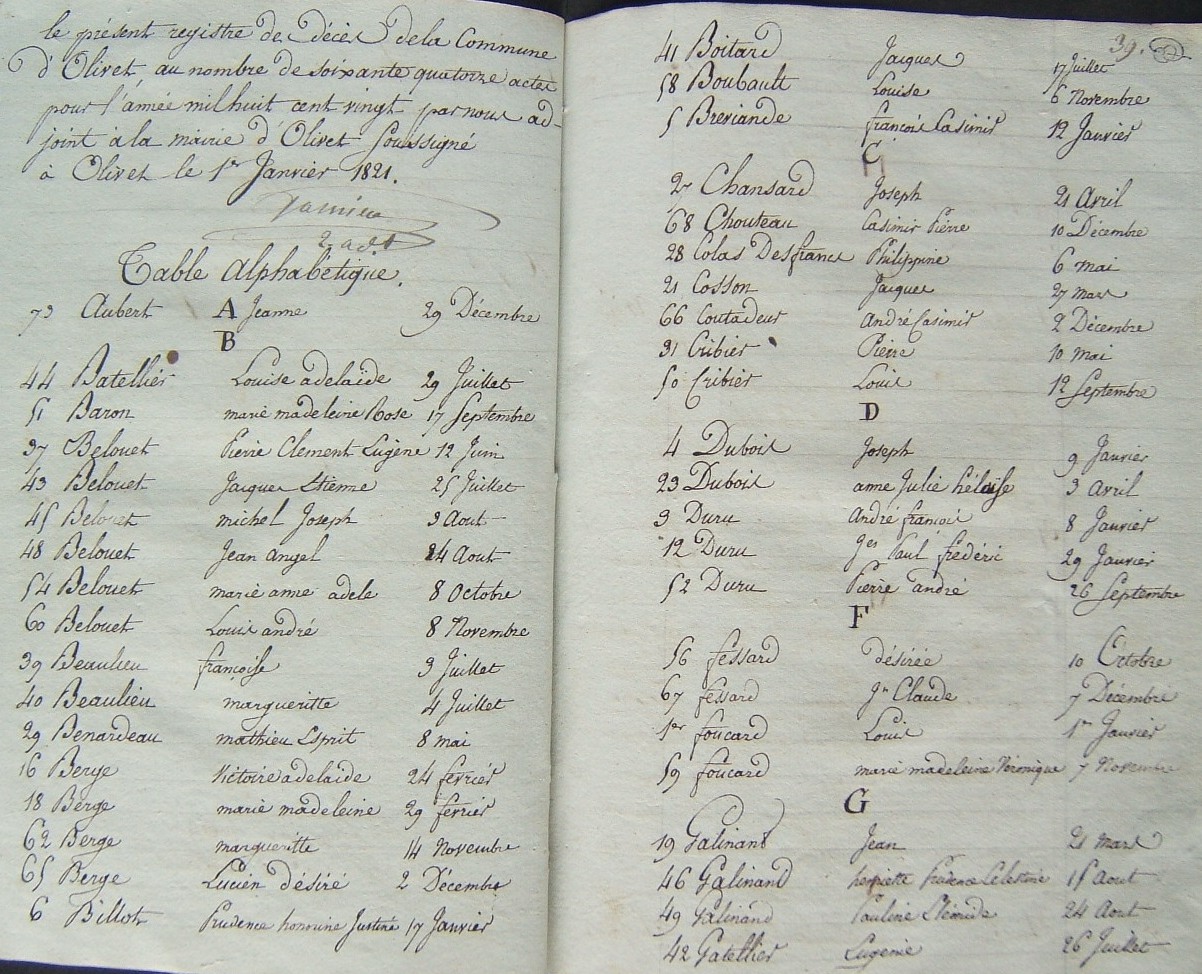 le présent registre de Décès de la Commune
d'Olivet, au nombre de soixante quatorze actes
pour l'année mil huit cent vingt par nous ad-
joint à la mairie d'Olivet soussigné
à Olivet le 1er Janvier 1821.
Table Alphabétique.
73 Aubert A Jeanne 29 Décembre
B
44 Batellier Louise adelaide 29 Juillet
51 Baron marie madeleine Rose 17 Septembre
37 Belouet Pierre Clement Eugène 12 Juin
43 Belouet Jacques Etienne 25 Juillet
45 Belouet michel Joseph 3 Aout
48 Belouet Jean angel 24 Aout
54 Belouet marie anne adele 8 Octobre
60 Belouet Louis andré 8 Novembre
39 Beaulieu françoise 3 Juillet
40 Beaulieu margueritte 4 Juillet
29 Benardeau mathieu Esprit 8 mai
16 Berge Victoire adelaide 24 fevrier
18 Berge marie madeleine 29 fevrier
62 Berge margueritte 14 Novembre
65 Berge Lucien désiré 2 Décembre
6 Billot Prudence honorine Justine 17 Janvier
39.
41 Boitard Jacques 17 Juillet
58 Boubault Louise 6 Novembre
5 Breviande françois Casimir 12 Janvier
C
27 Chansard Joseph 21 Avril
68 Chouteau Casimir Pierre 10 Décembre
28 Colas Desfrancs Philippine 6 mai
21 Cosson Jacques 27 mars
66 Coutadeur André Casimir 2 Décembre
31 Cribier Pierre 10 mai
50 Cribier Louis 12 Septembre
D
4 Dubois Joseph 9 Janvier
23 Dubois anne Julie héloise 3 Avril
3 Duru André françois 8 Janvier
12 Duru Jes Paul frédéric 29 Janvier
52 Duru Pierre andré 26 Septembre
F
56 fessard désirée 10 Octobre
67 fessard Jn Claude 7 Décembre
1er foucard Louis 1er Janvier
59 foucard marie madeleine Véronique 7 Novembre
G
19 Galinand Jean 21 mars
46 Galinand henriette Prudence Celestine 15 Aout
49 Galinand Pauline 24 Aout
42 Gatellier Eugenie 26 Juillet